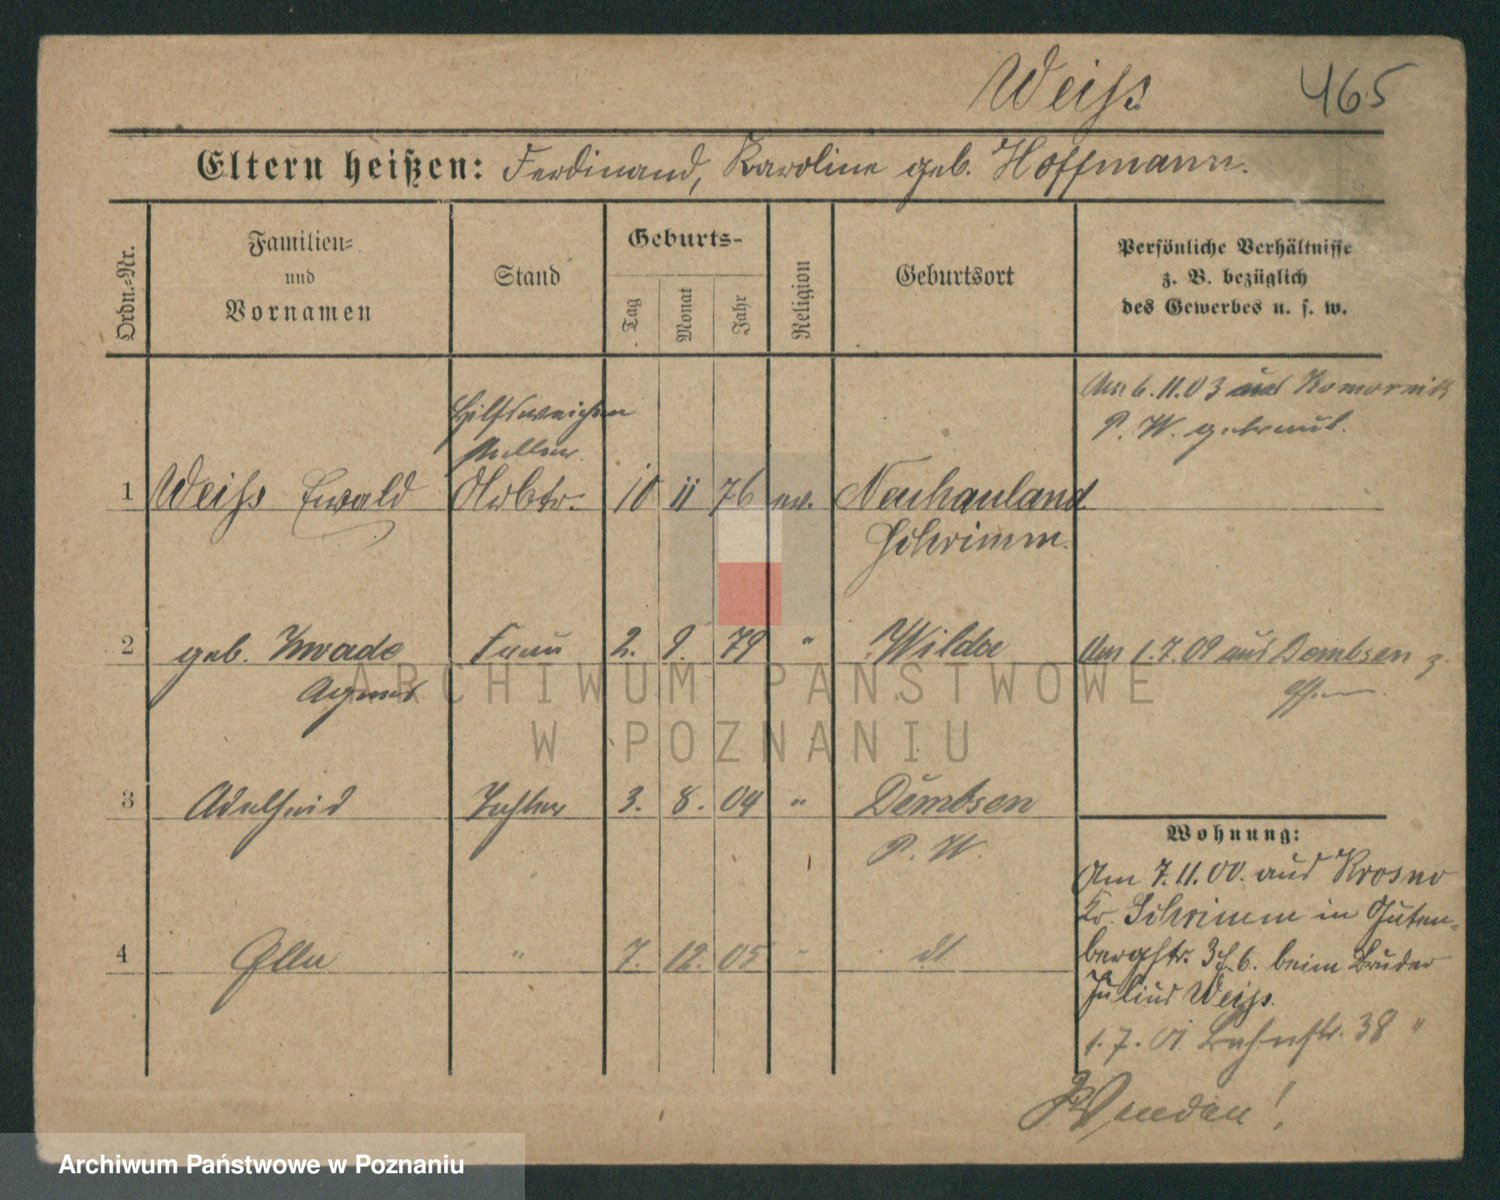 Weiß
465
Eltern heißen: Ferdinand, Karoline geb. Hoffmann.
Ordn.-Nr.
Familien-
und
Vornamen
Stand
Geburts-
Tag
Monat
Jahr
Religion
Geburtsort
Persönliche Verhältnisse
z. B. bezüglich
des Gewerbes u. s. w.
Am 6.11.03 aus Komornik
P. W. getraut.
Hilfsweichen
steller
1 Weiß Ewald Arbtr. 10 11 76 ev. Neuhauland
Schrimm.
2 geb. Kwade Frau 2. 9. 79 " Wilda Am 1.7.09 aus Dembsen z.
Agnes
3 Adelheid Tochter 3. 8. 04 " Dembsen
P. W.
Wohnung:
Am 7.11.00. aus Krosno
Kr. Schrimm in Guten-
bergstr. 3 b. 6. beim Bruder
Julius Weiß.
4 Ella " 7. 12. 05 - dt
1.7.01. Bahnstr. 38 "
Wenden!
ARCHIWUM PAŃSTWOWE
W POZNANIU
Archiwum Państwowe w Poznaniu